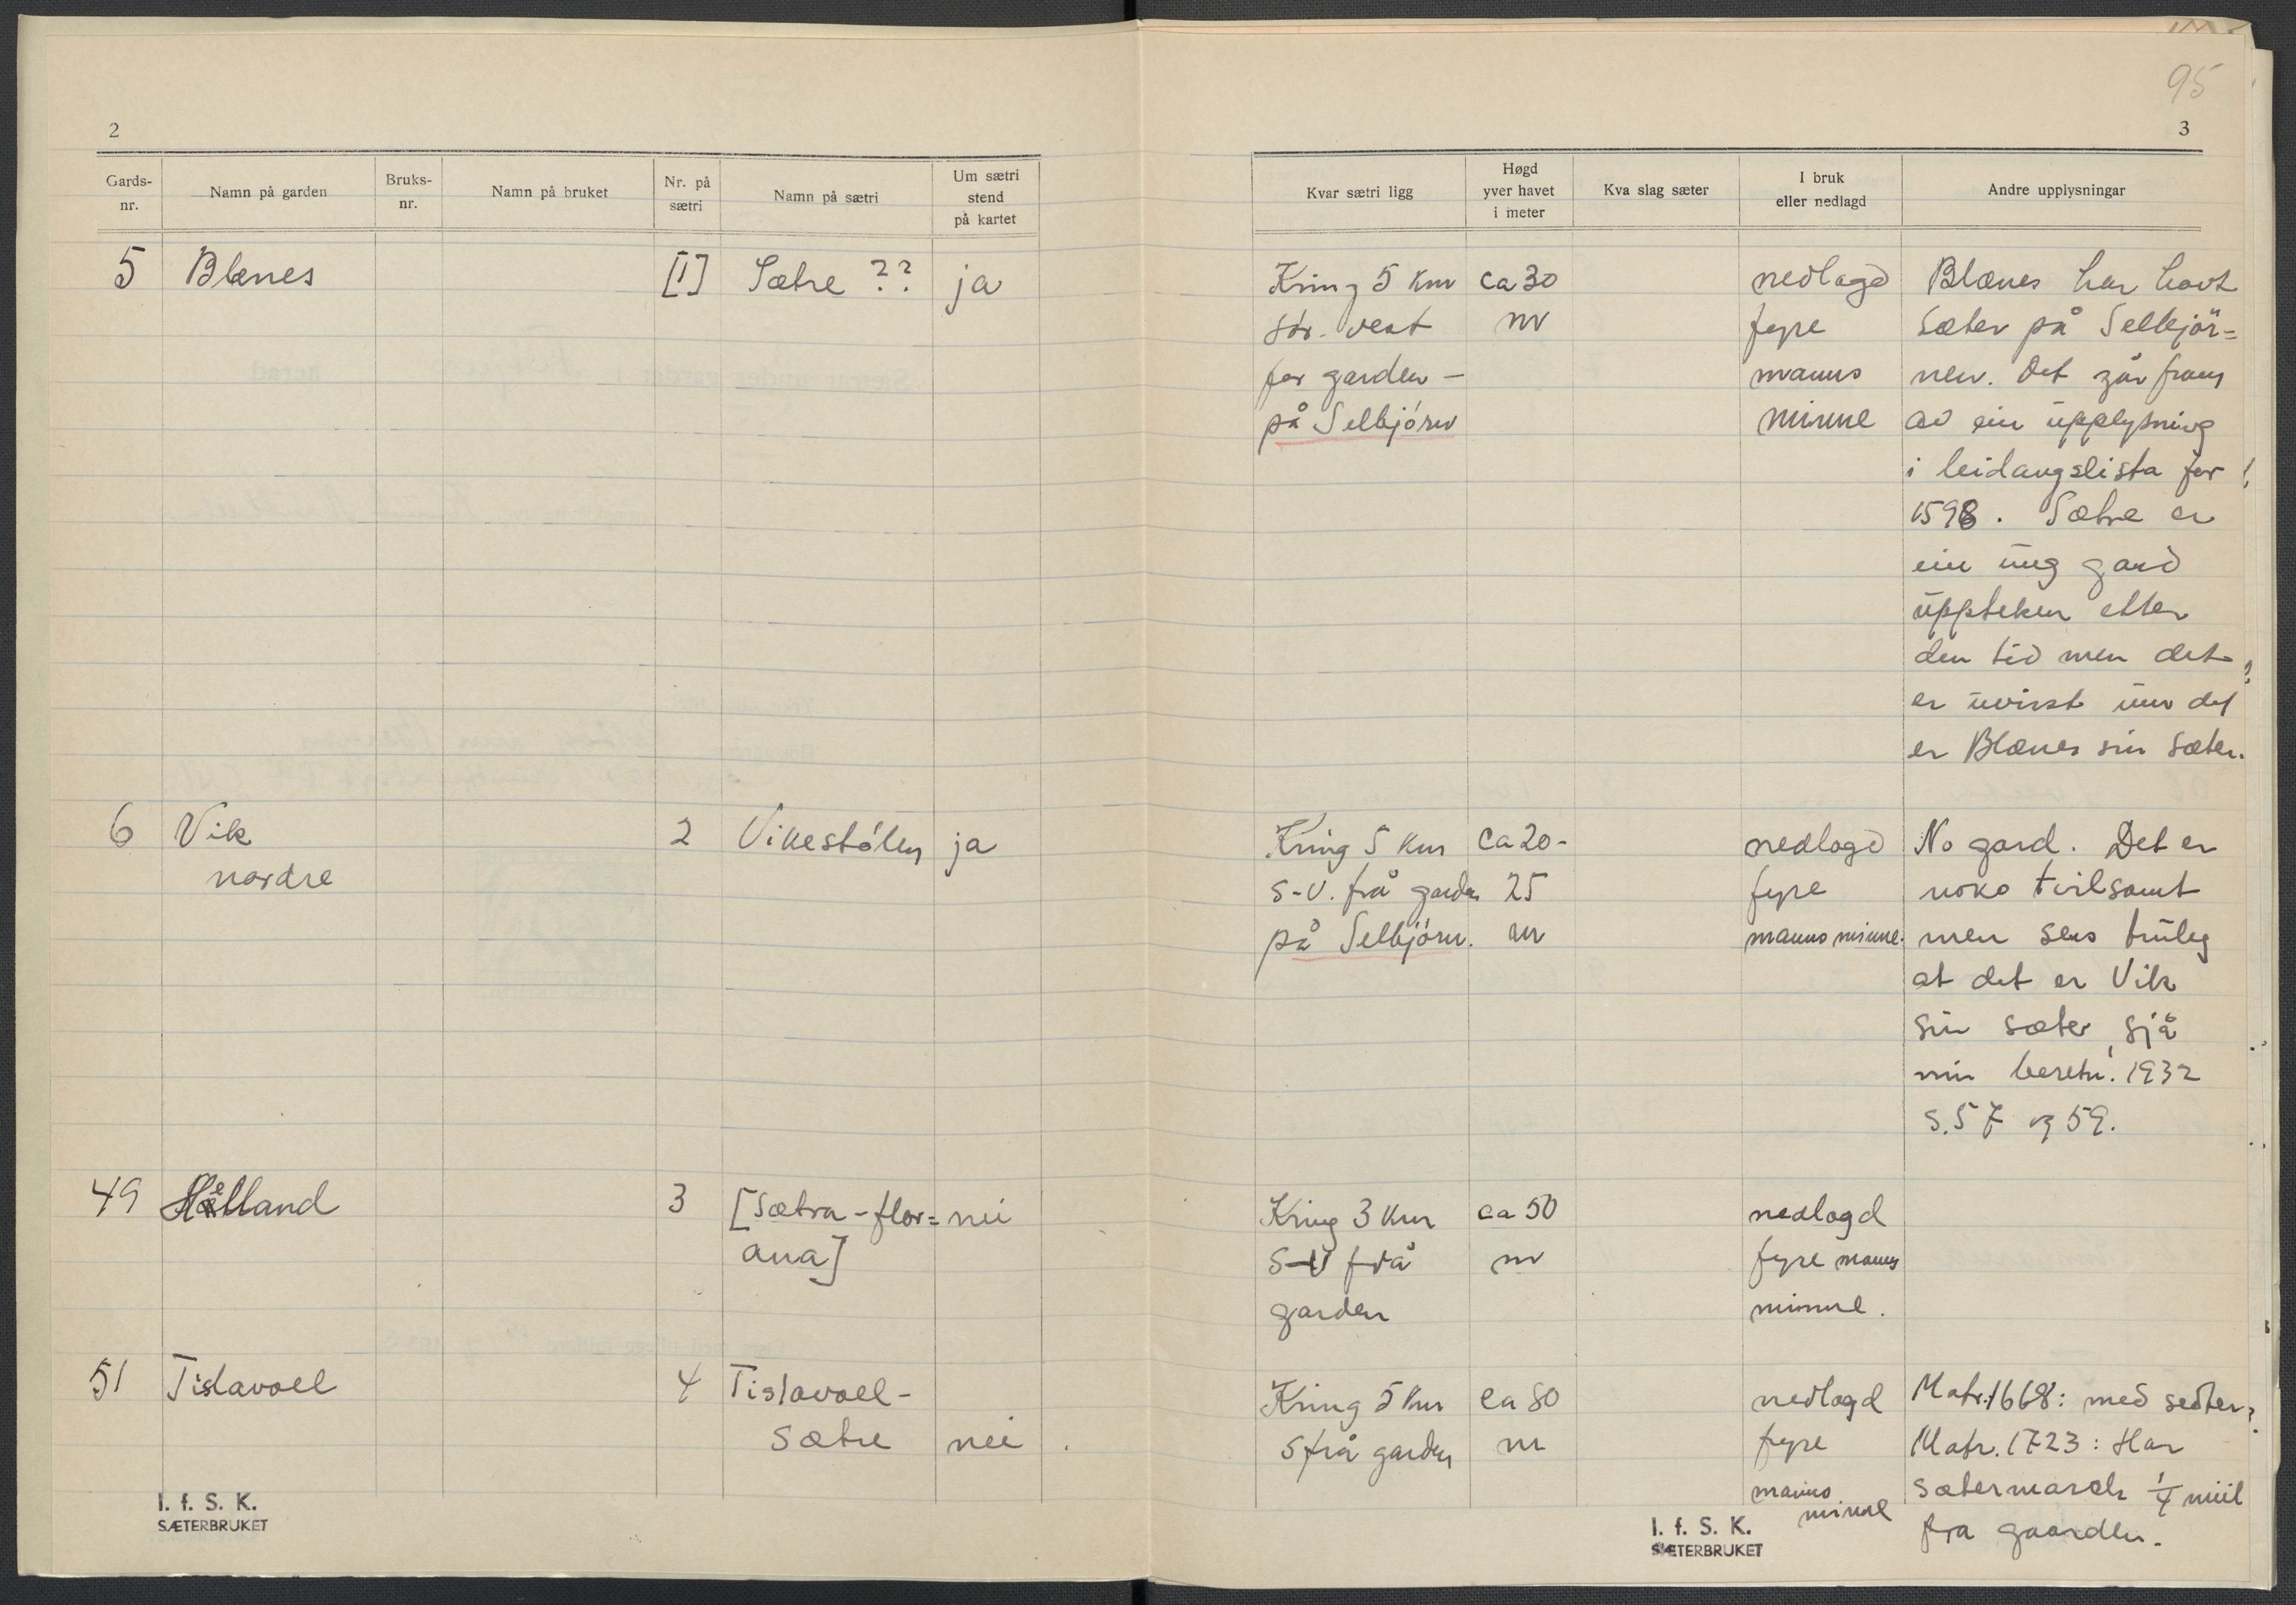 95
2
3
Gards-
nr.
Namn på garden
Bruks-
nr.
Namn på bruket
Nr. på
sætri
Namn på sætri
Um sætri
stend
på kartet
Kvar sætri ligg
Høgd
yver havet
i meter
Kva slag sæter
I bruk
eller nedlagd
Andre upplysningar
5 Blænes [1] Sætre ?? ja
Kring 5 km
sør-vest
for garden -
på Selbjørn
ca 30
m
nedlagd
fyre
manns
minne
Blænes har havt
sæter på Selbjör=
nen. Det går fram
av ein upplysning
i leidangslista for
1598. Sætre er
ein ung gard
uppteken etter
den tid men det
er uvisst um det
er Blænes sin sæter.
6 Vik
nordre
2 Vikestölen ja
Kring 5 km
S-V. frå garden
på Selbjörn.
ca 20-
25
m
nedlagd
fyre
manns minne.
No gard. Det er
noko tvilsamt
men sers truleg
at det er Vik
sin sæter, sjå
min beretn. 1932
s. 57 og 59.
49 Helland
3 [Sætra-flor=
ana]
nei
Kring 3 km
S-V frå
garden
ca 50
m
nedlagd
fyre manns
minne.
51 Tislavoll
4 Tislavoll-
Sætre nei
Kring 5 km
S frå garden
ca 80
m
nedlagd
fyre
manns
minne
Matr. 1668: med sedter
Matr. 1723: Har
sætermarch 1/4 miil
fra gaarden.
I. f. S. K.
SÆTERBRUKET
I. f. S. K.
SÆTERBRUKET